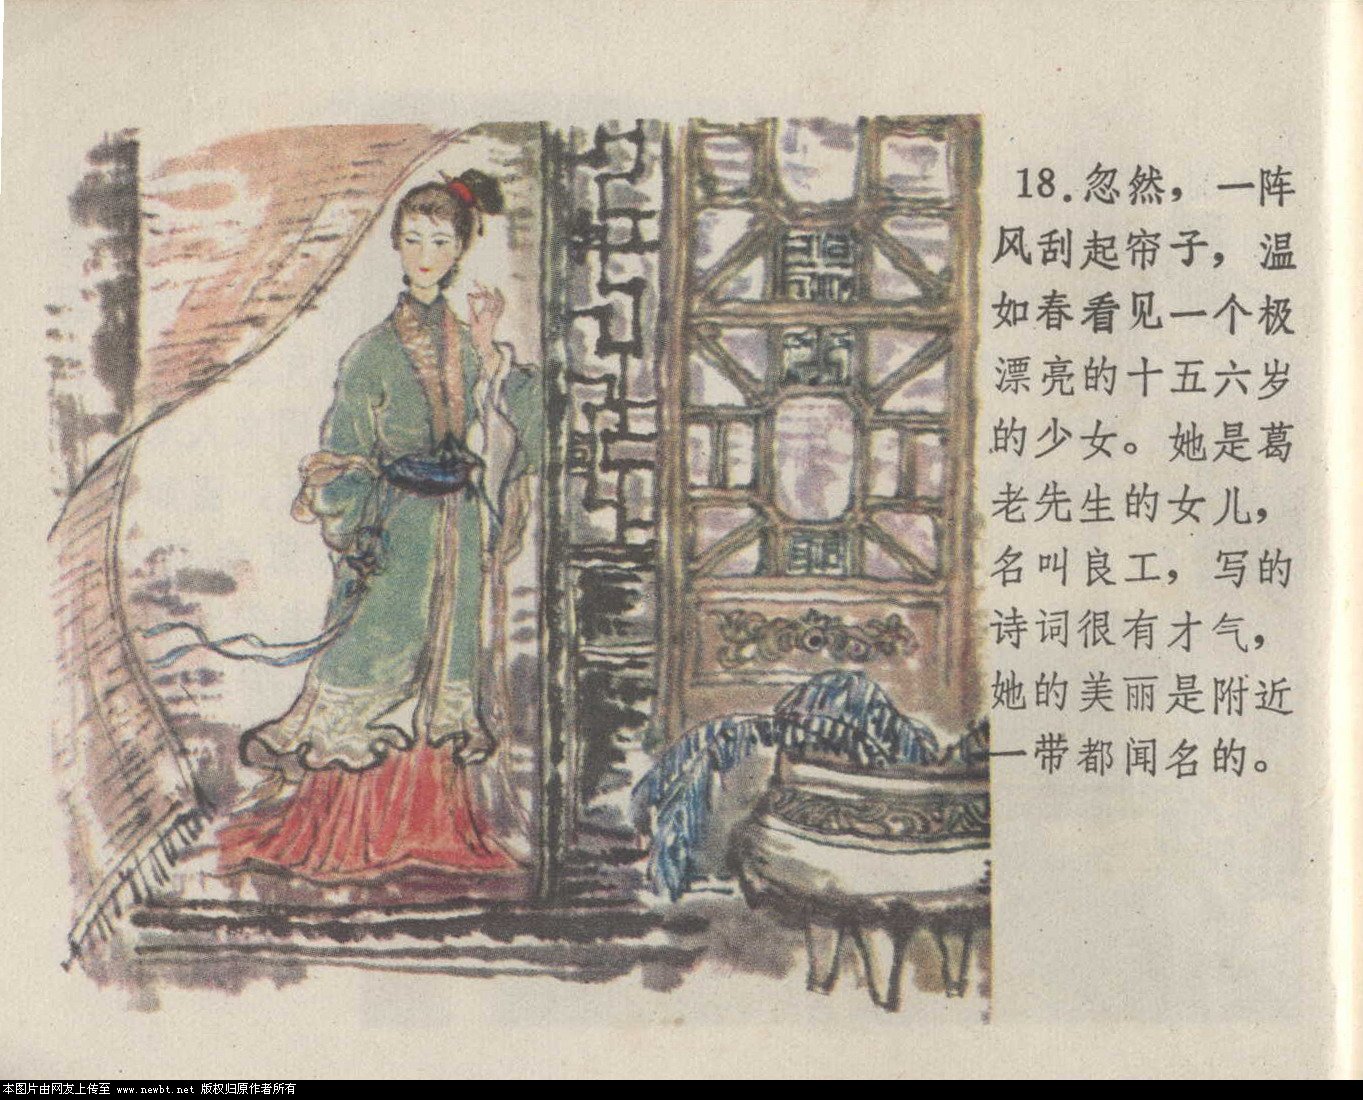 18.忽然，一阵
风刮起帘子，温
如春看见一个极
漂亮的十五六岁
的少女。她是葛
老先生的女儿，
名叫良工，写的
诗词很有才气，
她的美丽是附近
一带都闻名的。
本图片由网友上传至 www.newbt.net 版权归原作者所有